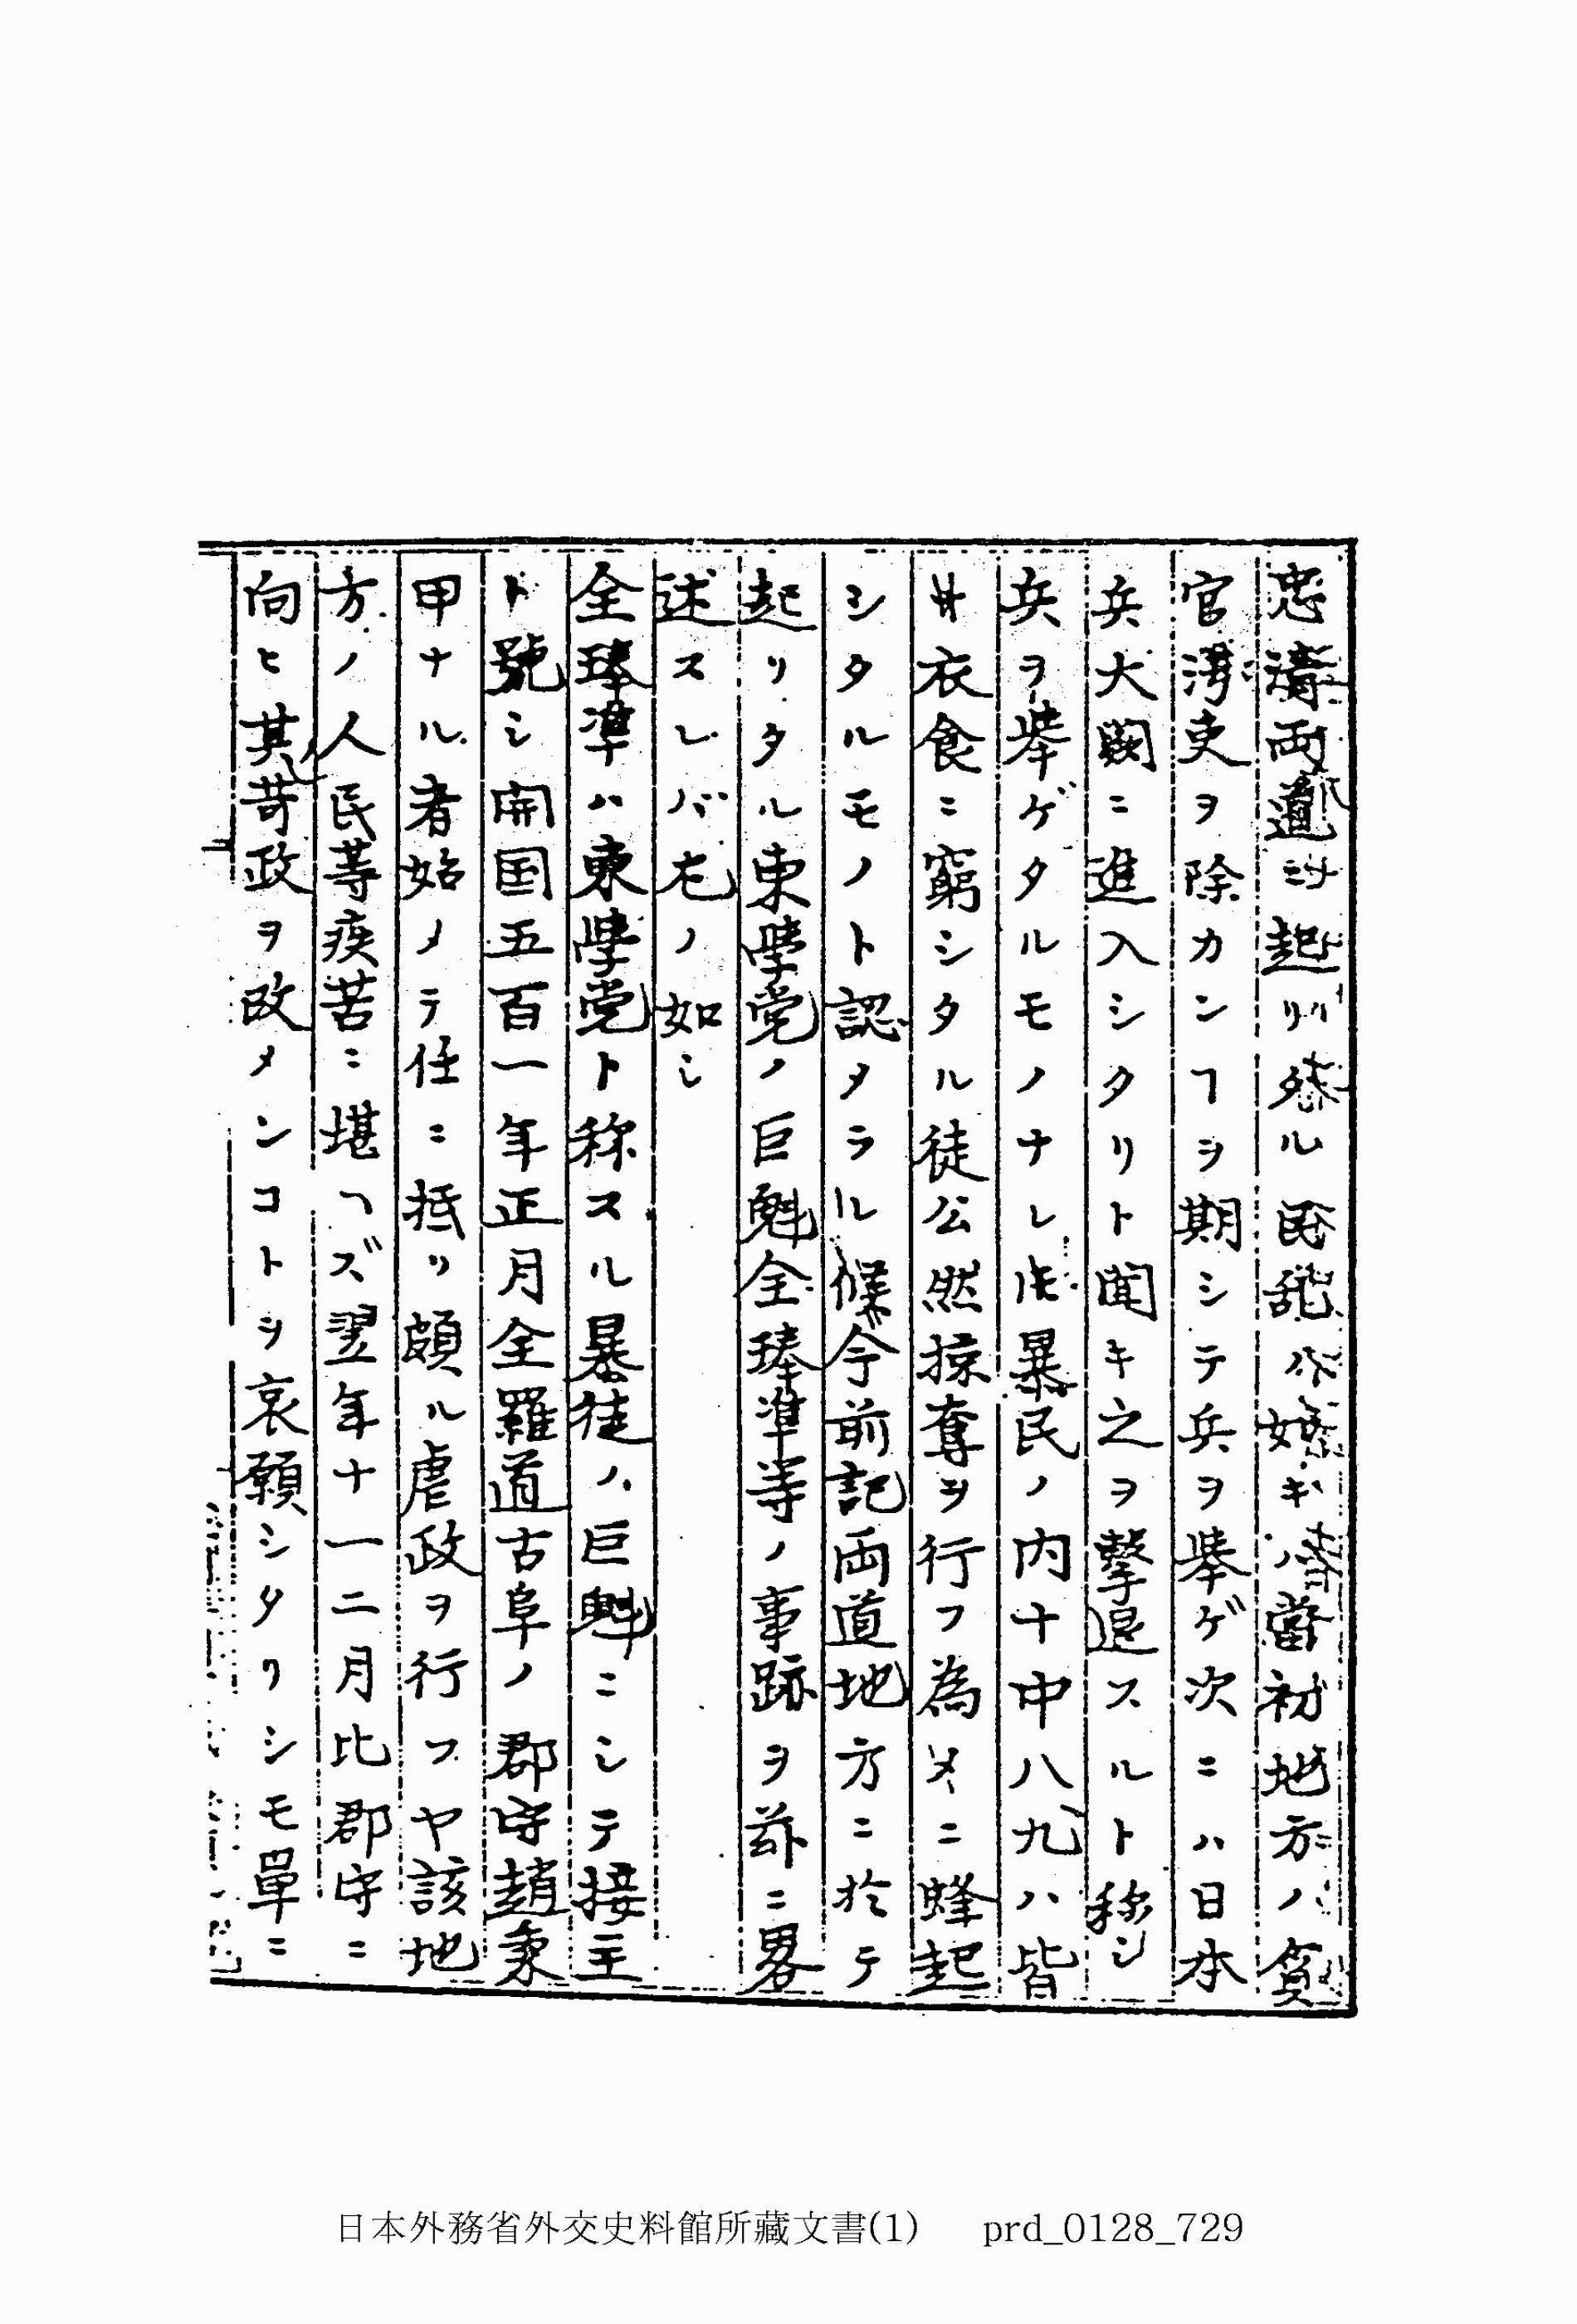 忠清両道ニ起リタル民乱ハ始キハ當初地方ノ貪
官汚吏ヲ除カンヿヲ期シテ兵ヲ挙ゲ次ニハ日本
兵大闕ニ進入シタリト聞キ之ヲ撃退スルト称シ
兵ヲ挙ゲタルモノナレ𪜈暴民ノ内十中八九ハ皆
ナ衣食ニ窮シタル徒公然掠奪ヲ行フ為メニ蜂起
シタルモノト認メラル候今前記両道地方ニ於テ
起リタル東學党ノ巨魁全琫準等ノ事跡ヲ茲ニ畧
述スレバ左ノ如シ
全琫準ハ東學党ト称スル暴徒ノ巨魁ニシテ接主
ト號シ開国五百一年正月全羅道古阜ノ郡守趙秉
甲ナル者始メテ任ニ抵リ頗ル虐政ヲ行フヤ該地
方ノ人民等疾苦ニ堪ヘズ翌年十一二月比郡守ニ
向ヒ其苛政ヲ改メンコトヲ哀願シタリシモ單ニ
日本外務省外交史料館所藏文書(1) prd_0128_729